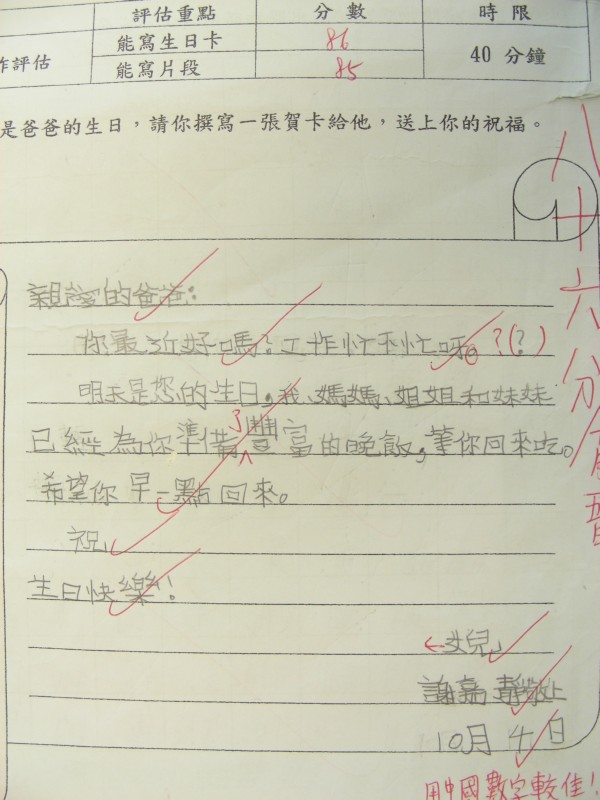 評估重點 分數 時限
作評估 能寫生日卡 86 40 分鐘
能寫片段 85
是爸爸的生日，請你撰寫一張賀卡給他，送上你的祝福。
八十六分
親愛的爸爸：
你最近好嗎？工作忙不忙呀。？(？)
明天是您的生日，我、媽媽、姐姐和妹妹
已經為你準備了豐富的晚飯，等你回來吃。
希望你早一點回來。
祝
生日快樂！
女兒
謝嘉靜敬上
10月4日
用中國數字較佳！